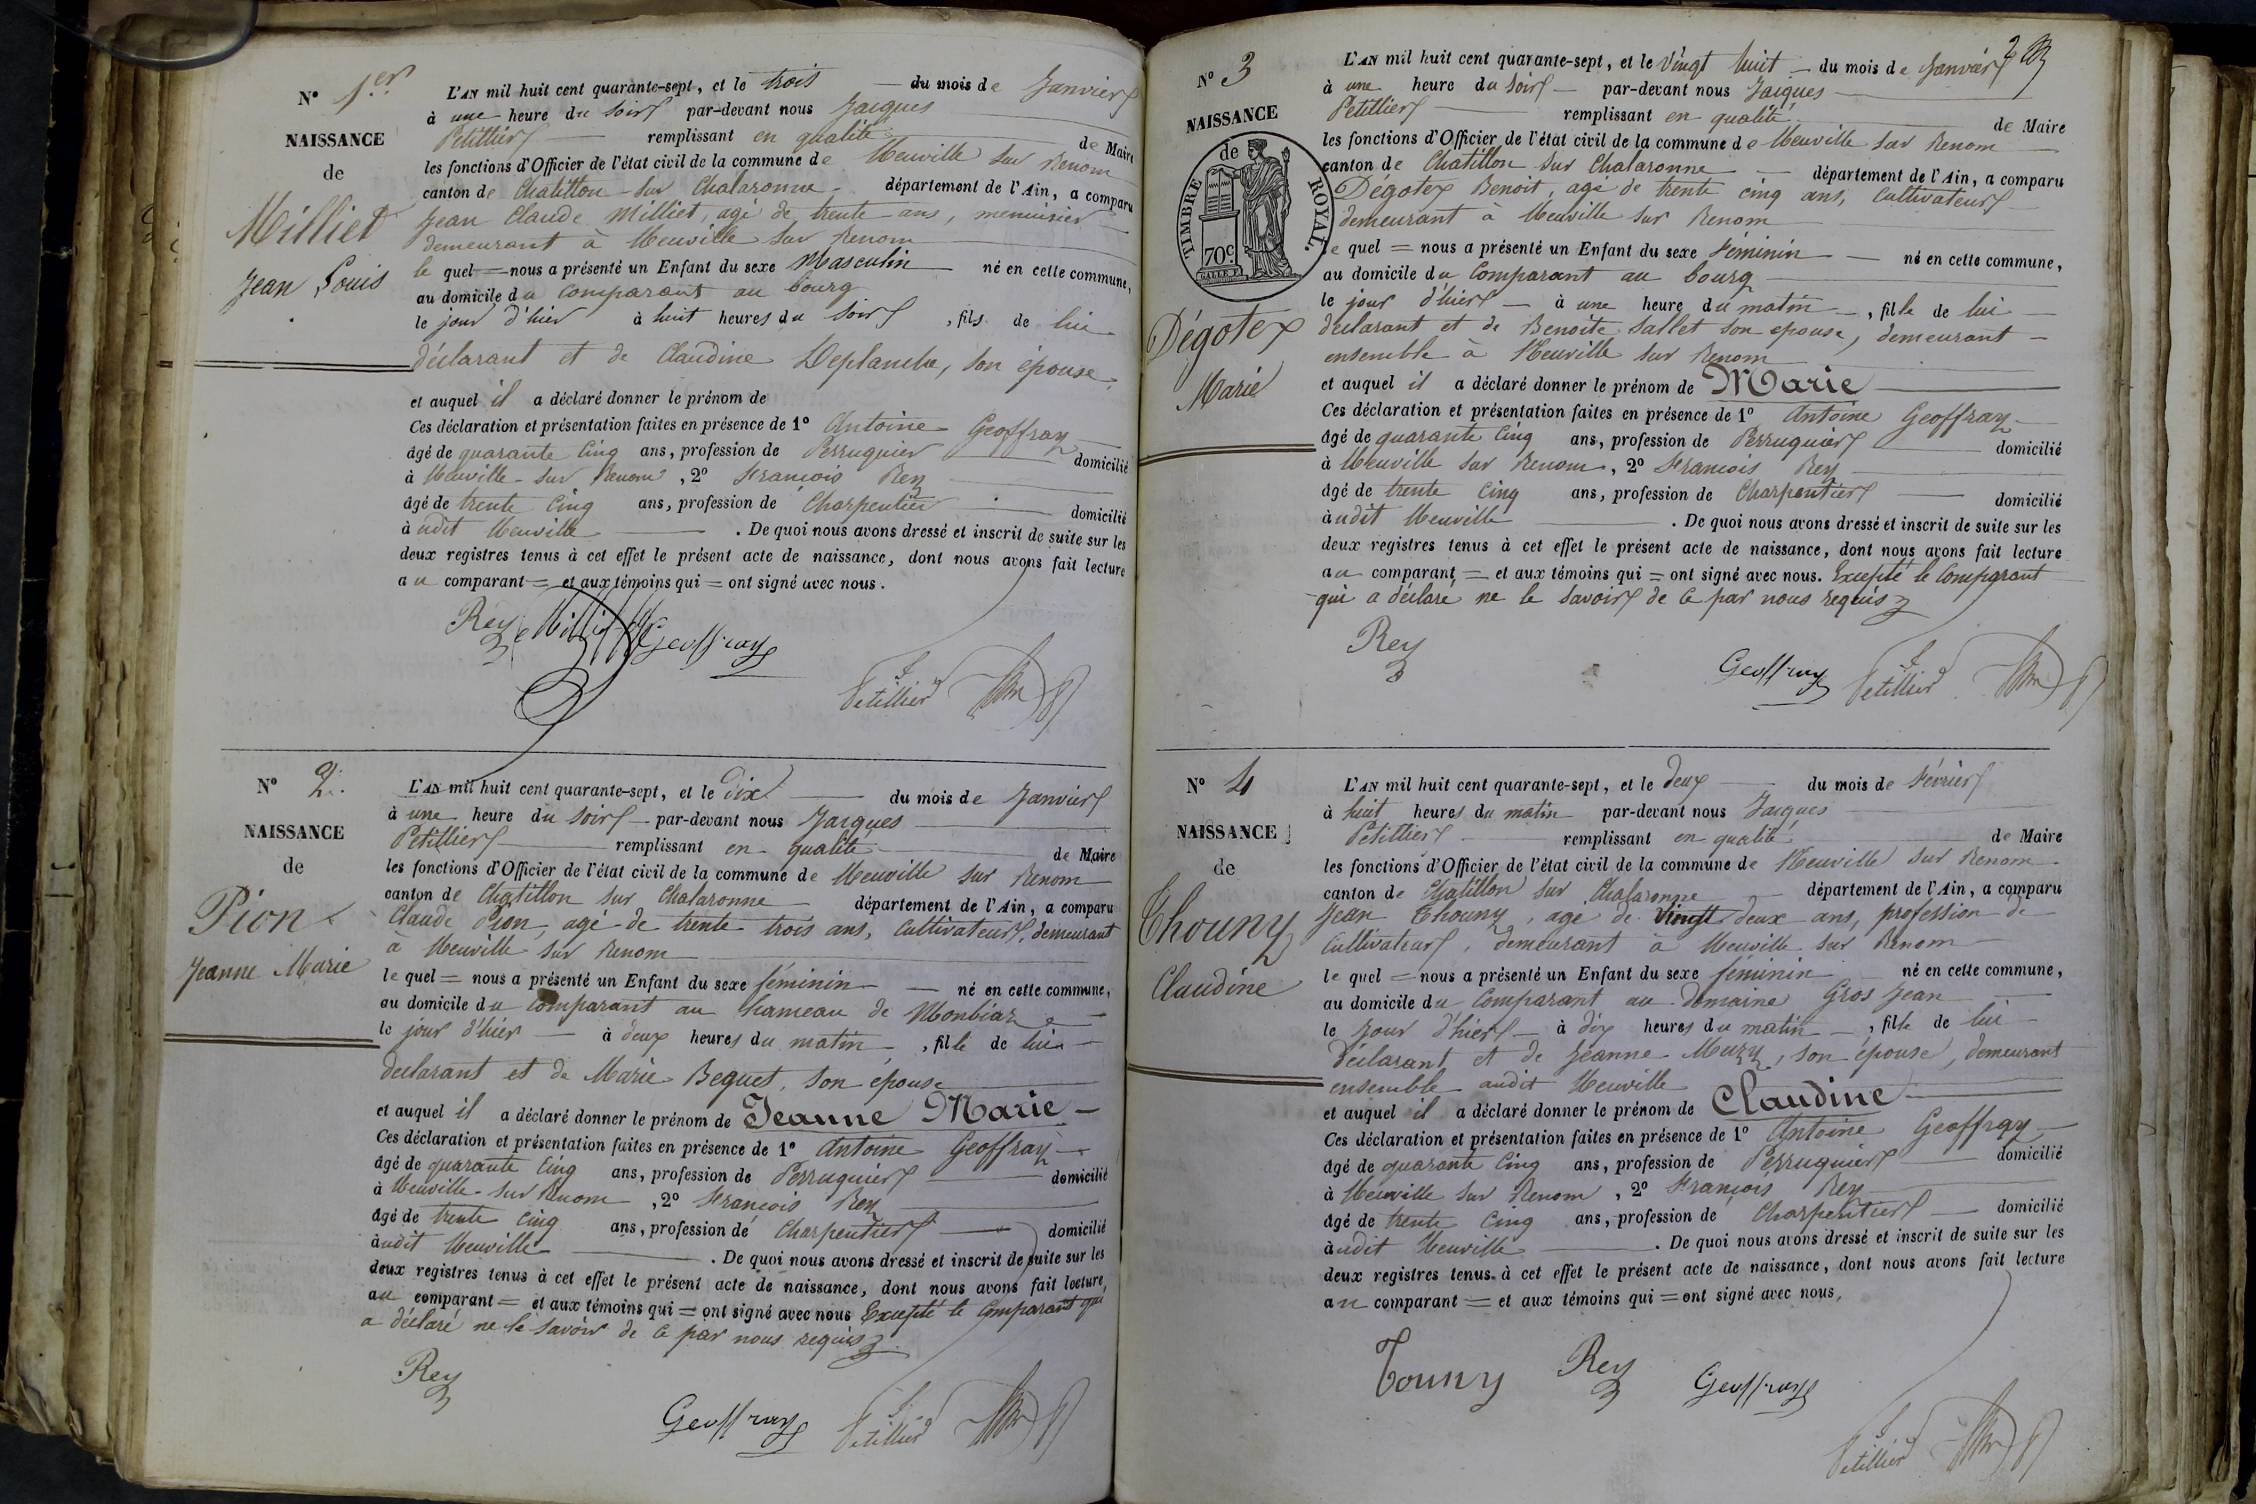 N° 1er
NAISSANCE
de
Milliet
Jean Louis
L'AN mil huit cent quarante-sept, et le trois du mois de Janvier
à une heure du soir par-devant nous Jacques
Petillier remplissant en qualité de Maire
les fonctions d'Officier de l'état civil de la commune de Neuville sur Renom
canton de Chatillon-sur Chalaronne département de l'Ain, a comparu
Jean Claude Milliet, agé de trente ans, menuisier
demeurant à Neuville sur Renom
le quel = nous a présenté un Enfant du sexe Masculin né en cette commune,
au domicile du comparant au bourg
le jour d'hier à huit heures du soir, fils de lui
déclarant et de Claudine Deplanche, son épouse.
et auquel il a déclaré donner le prénom de
Ces déclaration et présentation faites en présence de 1° Antoine Geoffray
âgé de quarante cinq ans, profession de Perruquier domicilié
à Neuville-sur Renom, 2° François Rey
âgé de trente cinq ans, profession de Charpentier domicilié
àudit Neuville. De quoi nous avons dressé et inscrit de suite sur les
deux registres tenus à cet effet le présent acte de naissance, dont nous avons fait lecture
au comparant = et aux témoins qui = ont signé avec nous.
Rey Milliet Geoffray
Petillier
N° 2.
NAISSANCE
de
Pion
Jeanne Marie
L'AN mil huit cent quarante-sept, et le dix du mois de Janvier
à une heure du soir par-devant nous Jacques
Petillier remplissant en qualité de Maire
les fonctions d'Officier de l'état civil de la commune de Neuville sur Renom
canton de Chatillon sur Chalaronne département de l'Ain, a comparu
Claude Pion, agé de trente trois ans, cultivateur, demeurant
à Neuville sur Renom
le quel = nous a présenté un Enfant du sexe féminin né en cette commune,
au domicile du comparant au hameau de Monbiaz
le jour d'hier à deux heures du matin, fille de lui
déclarant et de Marie Bequet, son épouse
et auquel il a déclaré donner le prénom de Jeanne Marie
Ces déclaration et présentation faites en présence de 1° Antoine Geoffray
âgé de quarante cinq ans, profession de Perruquier domicilié
à Neuville-sur Renom, 2° François Rey
âgé de trente cinq ans, profession de Charpentier domicilié
àudit Neuville. De quoi nous avons dressé et inscrit de suite sur les
deux registres tenus à cet effet le présent acte de naissance, dont nous avons fait lecture
au comparant = et aux témoins qui = ont signé avec nous Excepté le comparant qui
a déclaré ne le savoir de ce par nous requis
Rey
Geoffray Petillier
N° 3
NAISSANCE
de
TIMBRE ROYAL.
70c
Dégotex
Marie
L'AN mil huit cent quarante-sept, et le vingt huit du mois de Janvier
à une heure du soir par-devant nous Jacques
Petillier remplissant en qualité de Maire
les fonctions d'Officier de l'état civil de la commune de Neuville sur Renom
canton de Chatillon sur Chalaronne département de l'Ain, a comparu
Dégotex Benoit, agé de trente cinq ans, cultivateur
demeurant à Neuville sur Renom
le quel = nous a présenté un Enfant du sexe féminin né en cette commune,
au domicile du comparant au bourg
le jour d'hier à une heure du matin, fille de lui
déclarant et de Benoite Sallet son épouse, demeurant
ensemble à Neuville sur Renom
et auquel il a déclaré donner le prénom de Marie
Ces déclaration et présentation faites en présence de 1° Antoine Geoffray
âgé de quarante cinq ans, profession de Perruquier domicilié
à Neuville sur Renom, 2° François Rey
âgé de trente cinq ans, profession de Charpentier domicilié
àudit Neuville. De quoi nous avons dressé et inscrit de suite sur les
deux registres tenus à cet effet le présent acte de naissance, dont nous avons fait lecture
au comparant = et aux témoins qui = ont signé avec nous. Excepté le comparant
qui a déclaré ne le savoir de ce par nous requis
Rey
Geoffray Petillier
N° 4
NAISSANCE
de
Thouny
Claudine
L'AN mil huit cent quarante-sept, et le deux du mois de Février
à huit heures du matin par-devant nous Jacques
Petillier remplissant en qualité de Maire
les fonctions d'Officier de l'état civil de la commune de Neuville sur Renom
canton de Chatillon sur Chalaronne département de l'Ain, a comparu
Jean Thouny, agé de vingt deux ans, profession de
cultivateur, demeurant à Neuville sur Renom
le quel = nous a présenté un Enfant du sexe féminin né en cette commune,
au domicile du comparant au domaine Gros Jean
le jour d'hier à dix heures du matin, fille de lui
déclarant et de Jeanne Muzy, son épouse, demeurant
ensemble audit Neuville
et auquel il a déclaré donner le prénom de Claudine
Ces déclaration et présentation faites en présence de 1° Antoine Geoffray
âgé de quarante cinq ans, profession de Perruquier domicilié
à Neuville sur Renom, 2° François Rey
âgé de trente cinq ans, profession de Charpentier domicilié
àudit Neuville. De quoi nous avons dressé et inscrit de suite sur les
deux registres tenus à cet effet le présent acte de naissance, dont nous avons fait lecture
au comparant = et aux témoins qui = ont signé avec nous.
Touny Rey Geoffray
Petillier